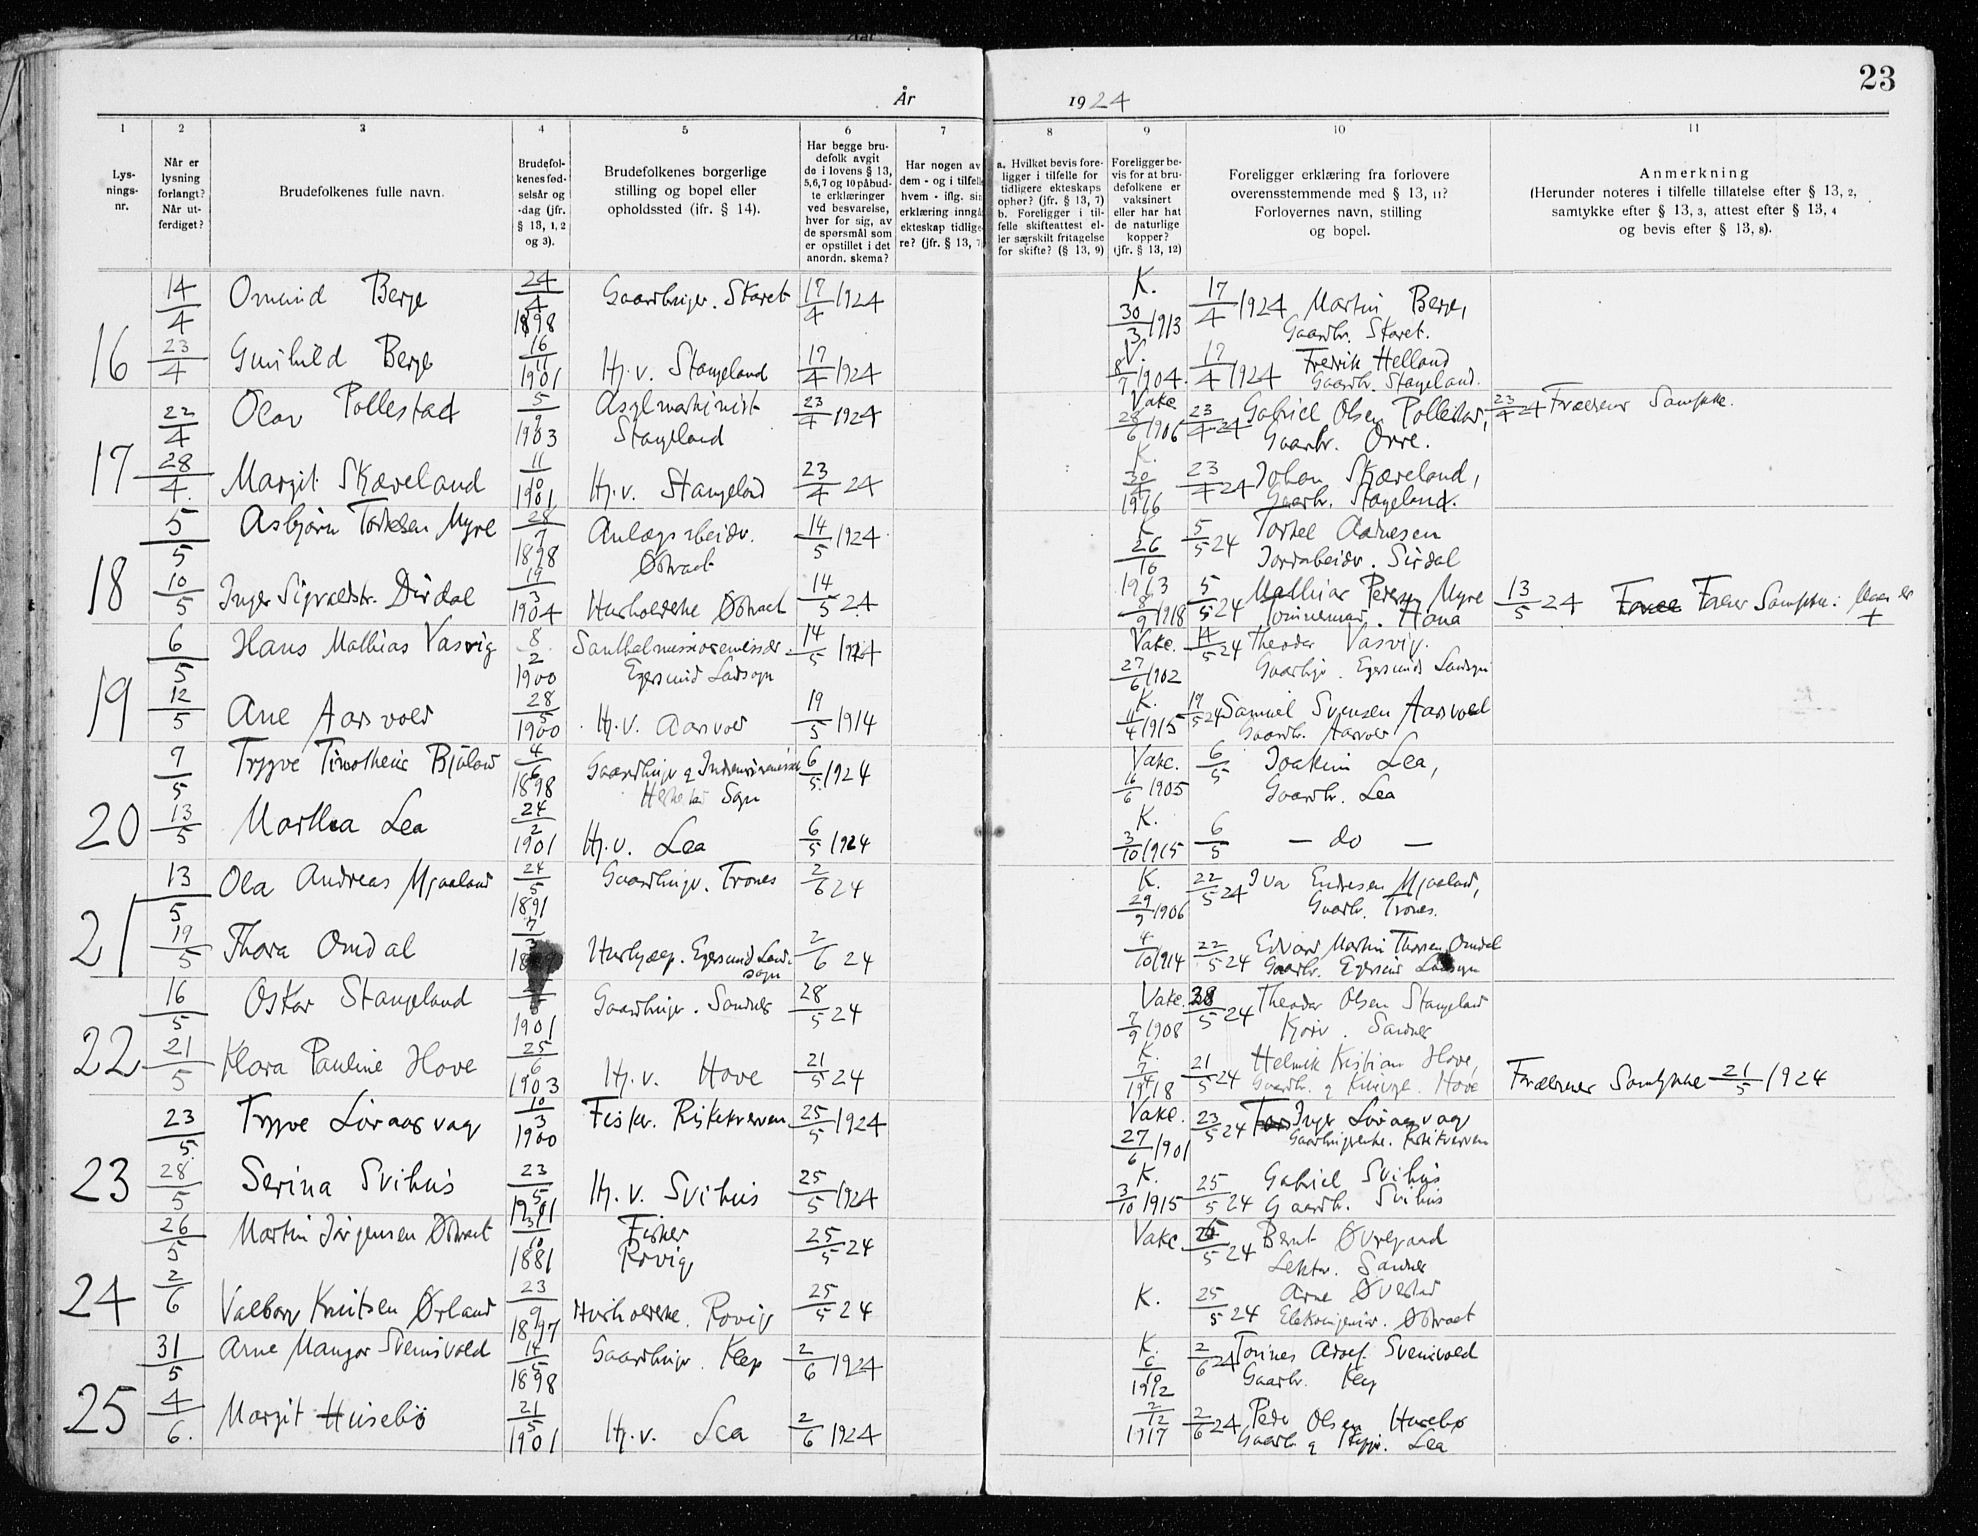 23
År 1924
1 2 3 4 5 6 7 8 9 10 11
Lys-
nings-
nr.
Når er
lysning
forlangt?
Når ut-
ferdiget?
Brudefolkenes fulle navn.
Brudefol-
kenes fød-
selsår og
-dag (jfr.
§ 13, 1, 2
og 3).
Brudefolkenes borgerlige
stilling og bopel eller
opholdssted (ifr. § 14).
Har begge bru-
defolk avgit
de i lovens § 13,
5,6,7 og 10 påbud-
te erklæringer
ved besvarelse,
hver for sig, av
de spørsmål som
er opstillet i det
anordn. skema?
Har nogen av
dem - og i tilfell
hvem - iflg. si
erklæring inngå
ekteskap tidlige-
re? (jfr. § 13, 7
a. Hvilket bevis fore-
ligger i tilfelle for
tidligere ekteskaps
ophør? (jfr. § 13, 7)
b. Foreligger i til-
felle skifteattest el-
ler særskilt fritagelse
for skifte? (§ 13, 9)
Foreligger be-
vis for at bru-
defolkene er
vaksinert
eller har hat
de naturlige
kopper?
(jfr. § 13, 12)
Foreligger erklæring fra forlovere
overensstemmende med § 13, 11?
Forlovernes navn, stilling
og bopel.
Anmerkning
(Herunder noteres i tilfelle tillatelse efter § 13, 2,
samtykke efter § 13, 3, attest efter § 13, 4
og bevis efter § 13, 8).
14/4 Omund Berge 24/4 1898 Gaardbruger. Skaret 17/4 1924 K. 30/3 1913 17/4 1924 Martin Berge,
Gaardbr. Skaret.
16 23/4 Gunhild Berge 16/11 1901 Hj. v. Stangeland 17/4 1924 V. 8/7 1904. 17/4 1924 Fredrik Helland
Gaardbr. Stangeland.
22/4 Olav Pollestad 5/9 1903 Stangeland 23/4 1924 Vakc. 28/6 1906 23/4 24 Gabriel Olsen Pollestad,
Gaardbr. Orre. 23/4 24
17 28/4. Margit Skæveland 11/10 1901 Hj. v. Stangeland 23/4 24 K. 30/4 1916 23/4 24 Johan Skæveland,
Gaardbr. Stangeland.
5/5 Asbjørn Torkelsen Myre 28/7 1898 Anlægsarbeider.
Østraat 14/5 1924 K. 26/10 1913 5/5 24
Sirdal
18 10/5 Inger Sigvaldstr. Dirdal 19/3 1904 Husholderske Østraat 14/5 24 8/9 1918 5/5 24 Mathias Pedersen Myre
Hana 13/5 24
6/5 Hans Mathias Vasvig 8/2 1900 Santhalmissionsemissær
Egersund Landsogn 14/5 1924 Vakc. 27/6 1902 14/5 24 Theodor Vasvig.
Gaardbr. Egersund Landsogn
19 12/5 Ane Aarsvold 28/5 1900 Hj. v. Aarsvold 19/5 1914 K. 11/4 1915 19/5 24 Samuel Svensen Aarsvold
Gaardbr. Aarsvold
9/5 Trygve Timotheus Bjåland 4/6 1898
Heskestad Sogn 6/5 1924 Vakc. 16/6 1905 6/5 Joakim Lea,
Gaardbr. Lea
20 13/5 Martha Lea 24/2 1901 Hj. v. Lea 6/5 1924 K. 3/10 1915 6/5 — do —
13/5 Ola Andreas Mjaaland 24/5 1891 Gaardbruger. Trones 2/6 24 K. 29/9 1906 22/5 24 Iva Endresen Mjaaland,
Gaardbr. Trones.
21 19/5 Thora Omdal 7/3 Egersund Land-
sogn 2/6 24 4/10 1914 22/5 24 Edvard Martin Thorsen Omdal
Gaardbr. Egersund Landsogn
16/5 Oskar Stangeland 1901 Gaardbruger. Sandnes 28/5 24 Vakc. 7/9 1908 28/5 24 Theodor Olsen Stangeland
Sandnes
22 21/5 Klara Pauline Hove 25/6 1903 Hj. v. Hove 21/5 24 K. 7/4 1918 21/5 24 Helmik Kristian Hove,
Hove Forældrenes Samtykke 21/5 1924
23/5. Trygve Løraasvag 10/3 1900 Fisker. 25/5 1924 Vakc. 27/6 1901 23/5 24 Inger Løraasvag
23 28/5 Serina Svihus 23/5 1901 Hj. v. Svihus 25/5 1924 K. 3/10 1915 25/5 24 Gabriel Svihus
Gaardbr. Svihus
26/5 Martin Jørgensen Østraat 31/10 1881 Fisker
Rovig 25/5 24 Vakc 5 24 Bernt Øvregaard
Lektor. Sandnes
24 2/6 Valborg Knutsen Ørland 23/9 1897 Husholderske. Rovig 25/5 24 K. 25/5 24 Arne Øvestad
Østraat
31/5 Arne Mangor Svenisvold 14/5 1898 Gaardbruger. Klep 2/6 1924 K. 6/10 1912 2/6 24 Tønnes Adolf Svenisvold
Gaardbr. Klep
25 4/6. Margit Husebø 21/5 1901 Hj. v. Lea 2/6 1924 2/12 1917 2/6 24 Peder Olsen Husebø
Lea